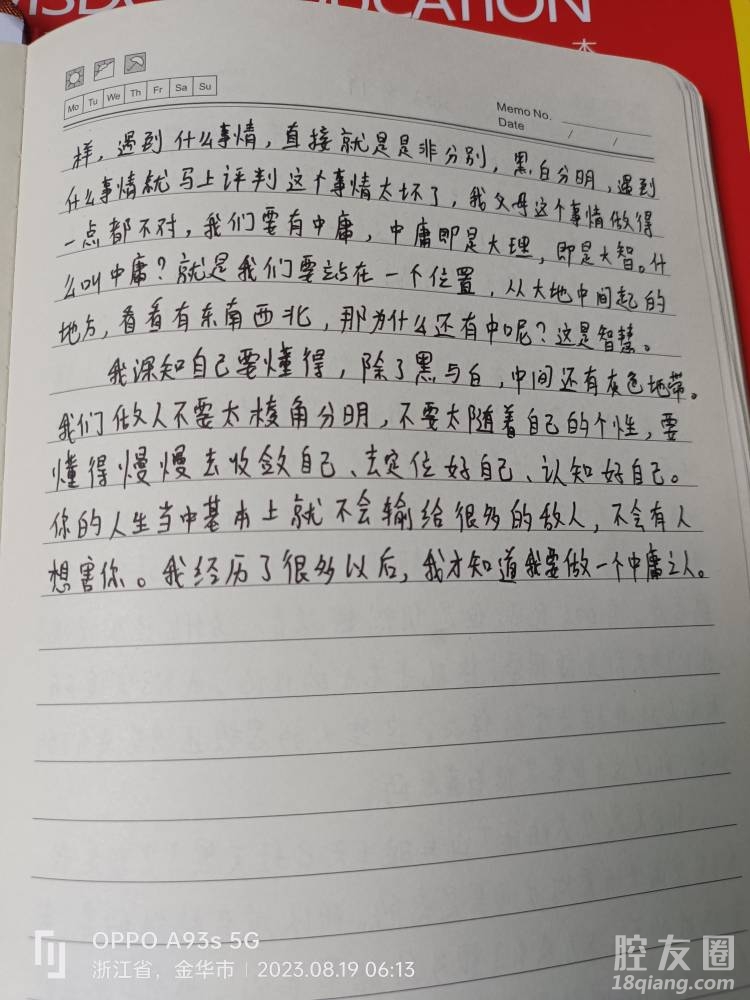 本
Mo Tu We Th Fr Sa Su
Memo No.
Date / /
样，遇到什么事情，直接就是是非分别，黑白分明，遇到
什么事情就马上评判这个事情太坏了，我父母这个事情做得
一点都不对，我们要有中庸，中庸即是大理，即是大智。什
么叫中庸？就是我们要站在一个位置，从大地中间起的
地方，看看有东南西北，那为什么还有中呢？这是智慧。
我深知自己要懂得，除了黑与白，中间还有灰色地带。
我们做人不要太棱角分明，不要太随着自己的个性，要
懂得慢慢去收敛自己、去定位好自己、认知好自己。
你的人生当中基本上就不会输给很多的敌人，不会有人
想害你。我经历了很多以后，我才知道我要做一个中庸之人。
OPPO A93s 5G
浙江省，金华市 | 2023.08.19 06:13
腔友圈
18qiang.com